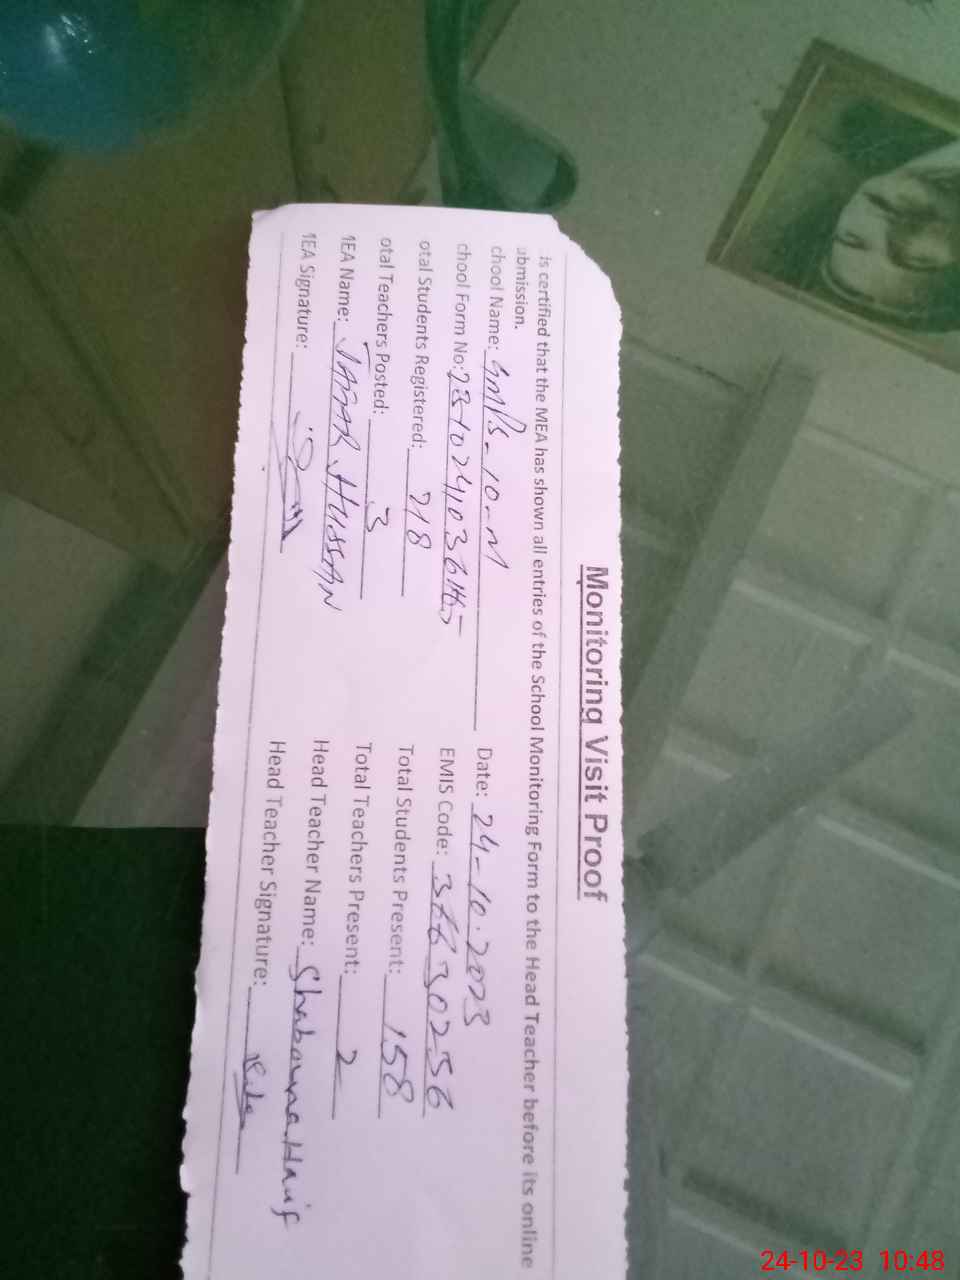 Monitoring Visit Proof
is certified that the MEA has shown all entries of the School Monitoring Form to the Head Teacher before its online
ubmission.
chool Name: GMPS-10-M Date: 24-10-2023
chool Form No: EMIS Code:
otal Students Registered: 218 Total Students Present: 158
otal Teachers Posted: 3 Total Teachers Present: 2
1EA Name: JAFAR HUSSAN Head Teacher Name: Shabanna Hanif
1EA Signature: Head Teacher Signature:
24-10-23 10:48